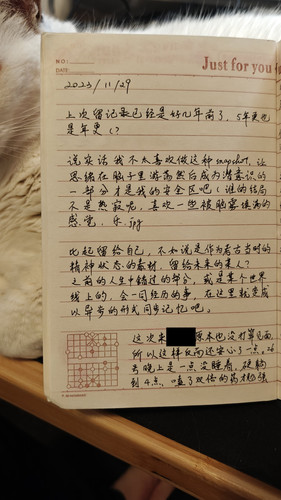 NO:
DATE:
Just for you
2023/11/29
上次留记录已经是好几年前了，5年更也
是年更（？
说实话我不太喜欢做这种 snapshot，让
思绪在脑子里游荡然后成为潜意识的
一部分才是我的安全区吧（谁的结局
不是热寂呢，喜欢一些被脑雾填满的
感觉，乐.jpg
比起留给自己，不如说是作为考古当时的
精神状态的素材，留给未来的某人？
之前的人生中错过的部分，或是某个世界
线上的，会一同经历的事，在这里就变成
以异步的形式同步记忆吧。
这次来
原本也没打算见面，
所以这样反而还安心了一点。
去晚上是一点没睡着，硬躺
到4点，嗑了双倍的药才勉强